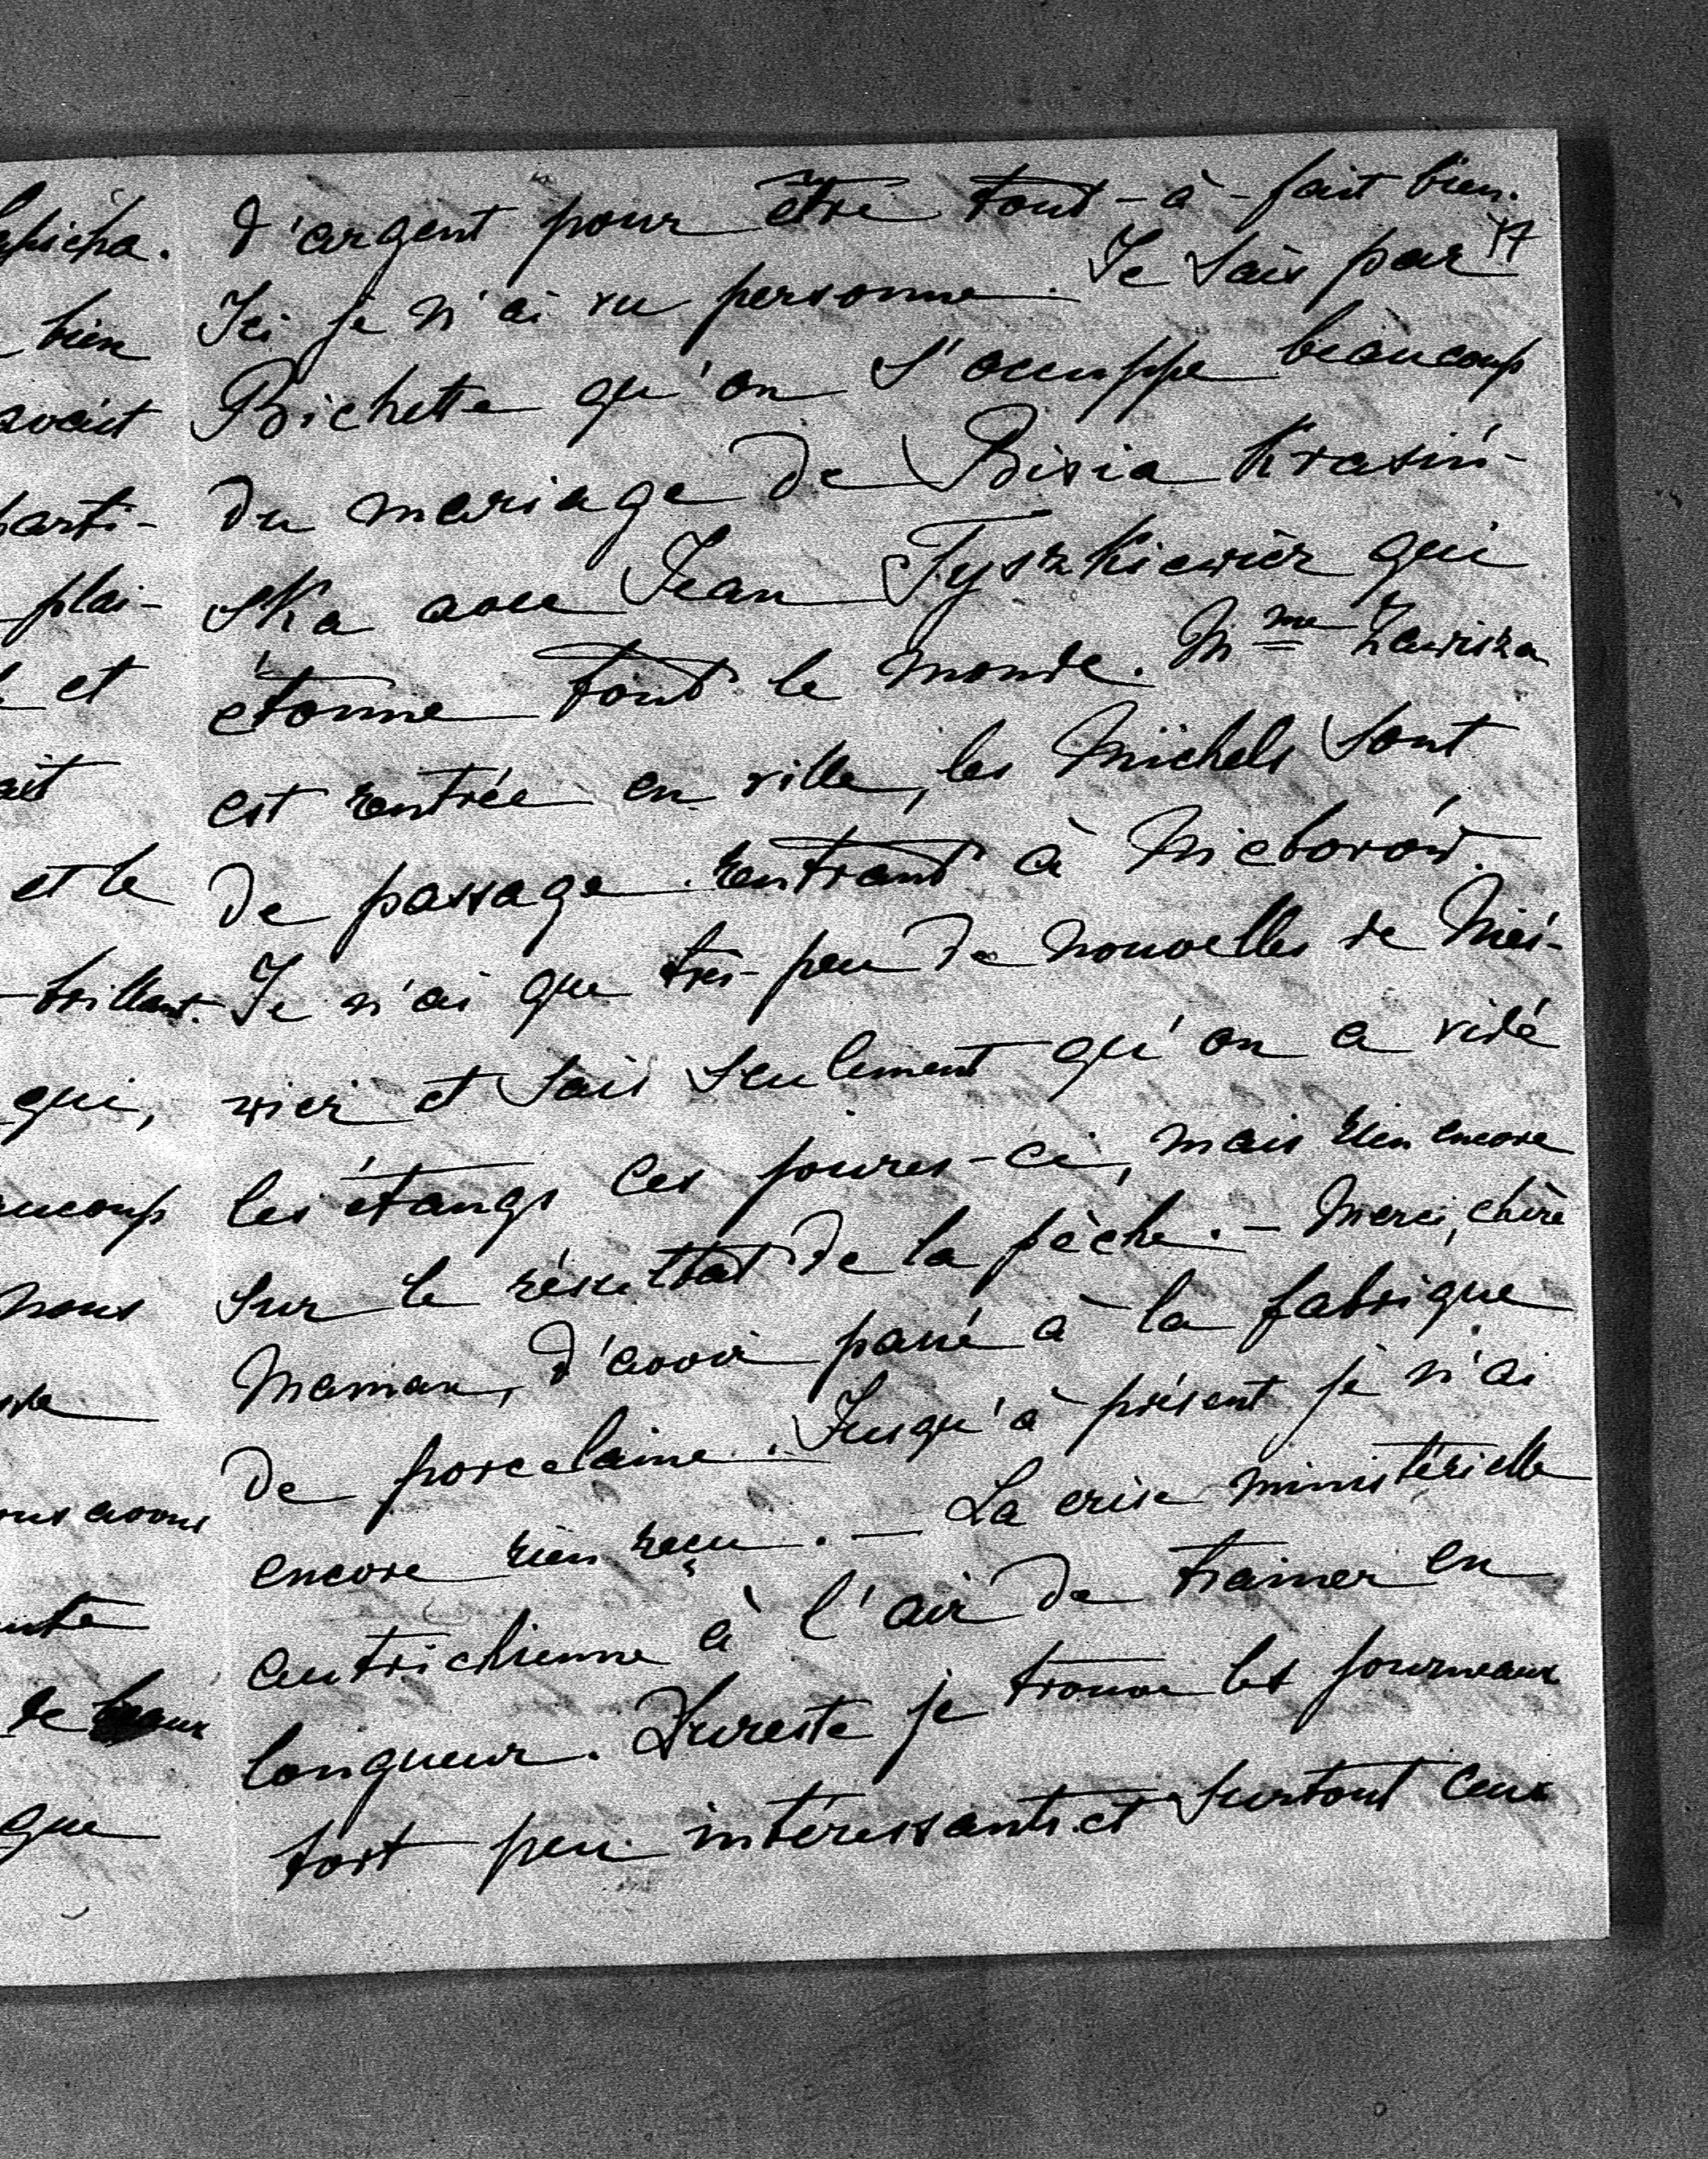 d'argent pour être tout-à-fait bien.
17
Ici je n'ai vu personne. Je sais par
Bichette qu'on s'occuppe beaucoup
du mariage de Bisia Krasiń-
ska avec Jean Tyszkiewicz qui
étonne tout le monde. Mme Zawisza
est rentrée en ville, les Michels sont
de passage rentrant à Nieborów.
Je n'ai que très-peu de nouvelles de Nieś-
wież et sais seulement qu'on a vidé
les étangs ces jours-ci, mais rien encore
sur le résultat de la pêche. — Merci, chère
Maman, d'avoir passé à la fabrique
de porcelaine. Jusqu'à présent je n'ai
encore rien reçu. — La crise ministérielle
autrichienne à l'air de trainer en
longueur. Dureste je trouve les journeaux
fort peu intéressants et surtout ceux
bien
avait
parti-
plai-
et
ait
et le
brillant.
qui,
nous
avons
de
que